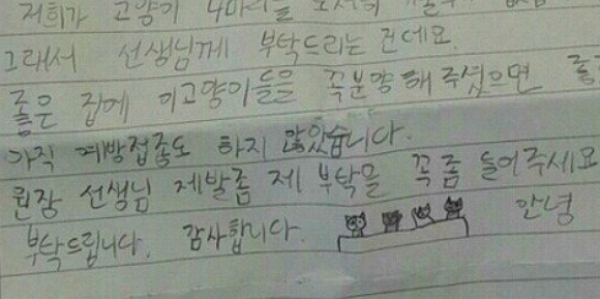 저희가 고양이 4마리를
그래서 선생님께 부탁드리는 건데요.
좋은 집에 이고양이들을 꼭분양해주셨으면
아직 예방접종도 하지 않았습니다.
원장 선생님 제발좀 제 부탁을 꼭좀 들어주세요
부탁드립니다. 감사합니다. 안녕